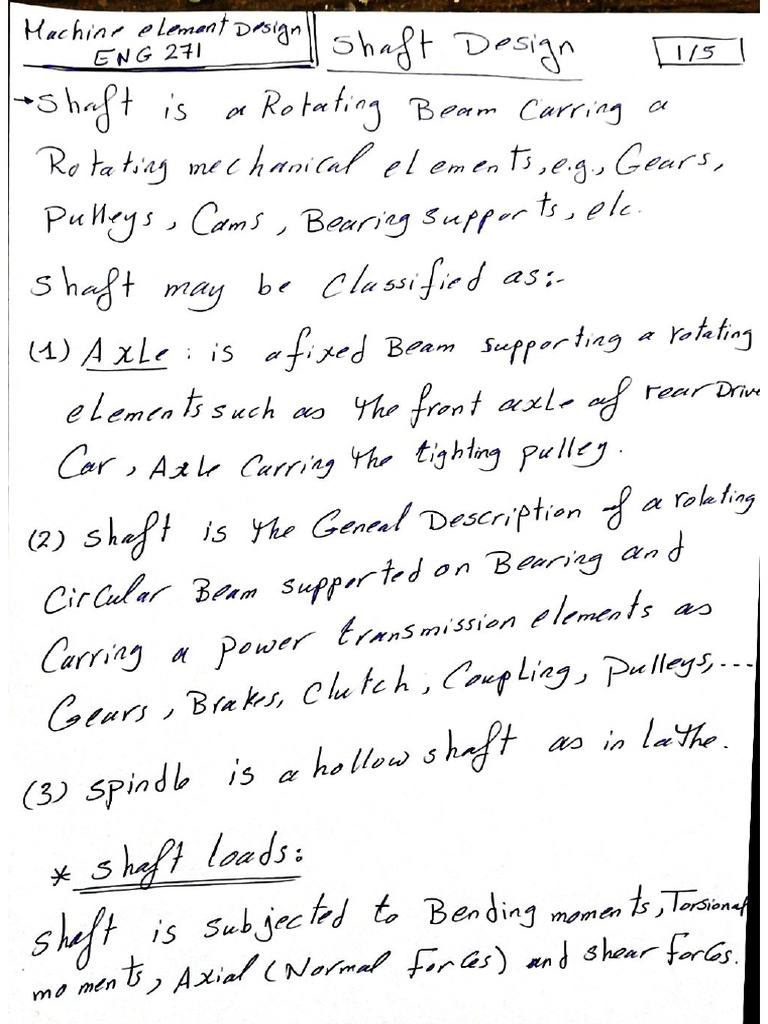 Machine element Design
ENG 271
Shaft Design
1/5
→ Shaft is a Rotating Beam Carring a
Rotating mechanical elements, e.g., Gears,
Pulleys, Cams, Bearing supports, etc.
Shaft may be Classified as:-
(1) Axle : is a fixed Beam supporting a rotating
elements such as the front axle of rear Drive
Car, Axle Carring the tighting pulley.
(2) Shaft is the Geneal Description of a rotating
Circular Beam supported on Bearing and
Carring a power transmission elements as
Gears, Brakes, Clutch, Coupling, Pulleys, ...
(3) spindle is a hollow shaft as in lathe.
* Shaft loads:
Shaft is subjected to Bending moments, Torsional
moments, Axial (Normal Forces) and shear forces.